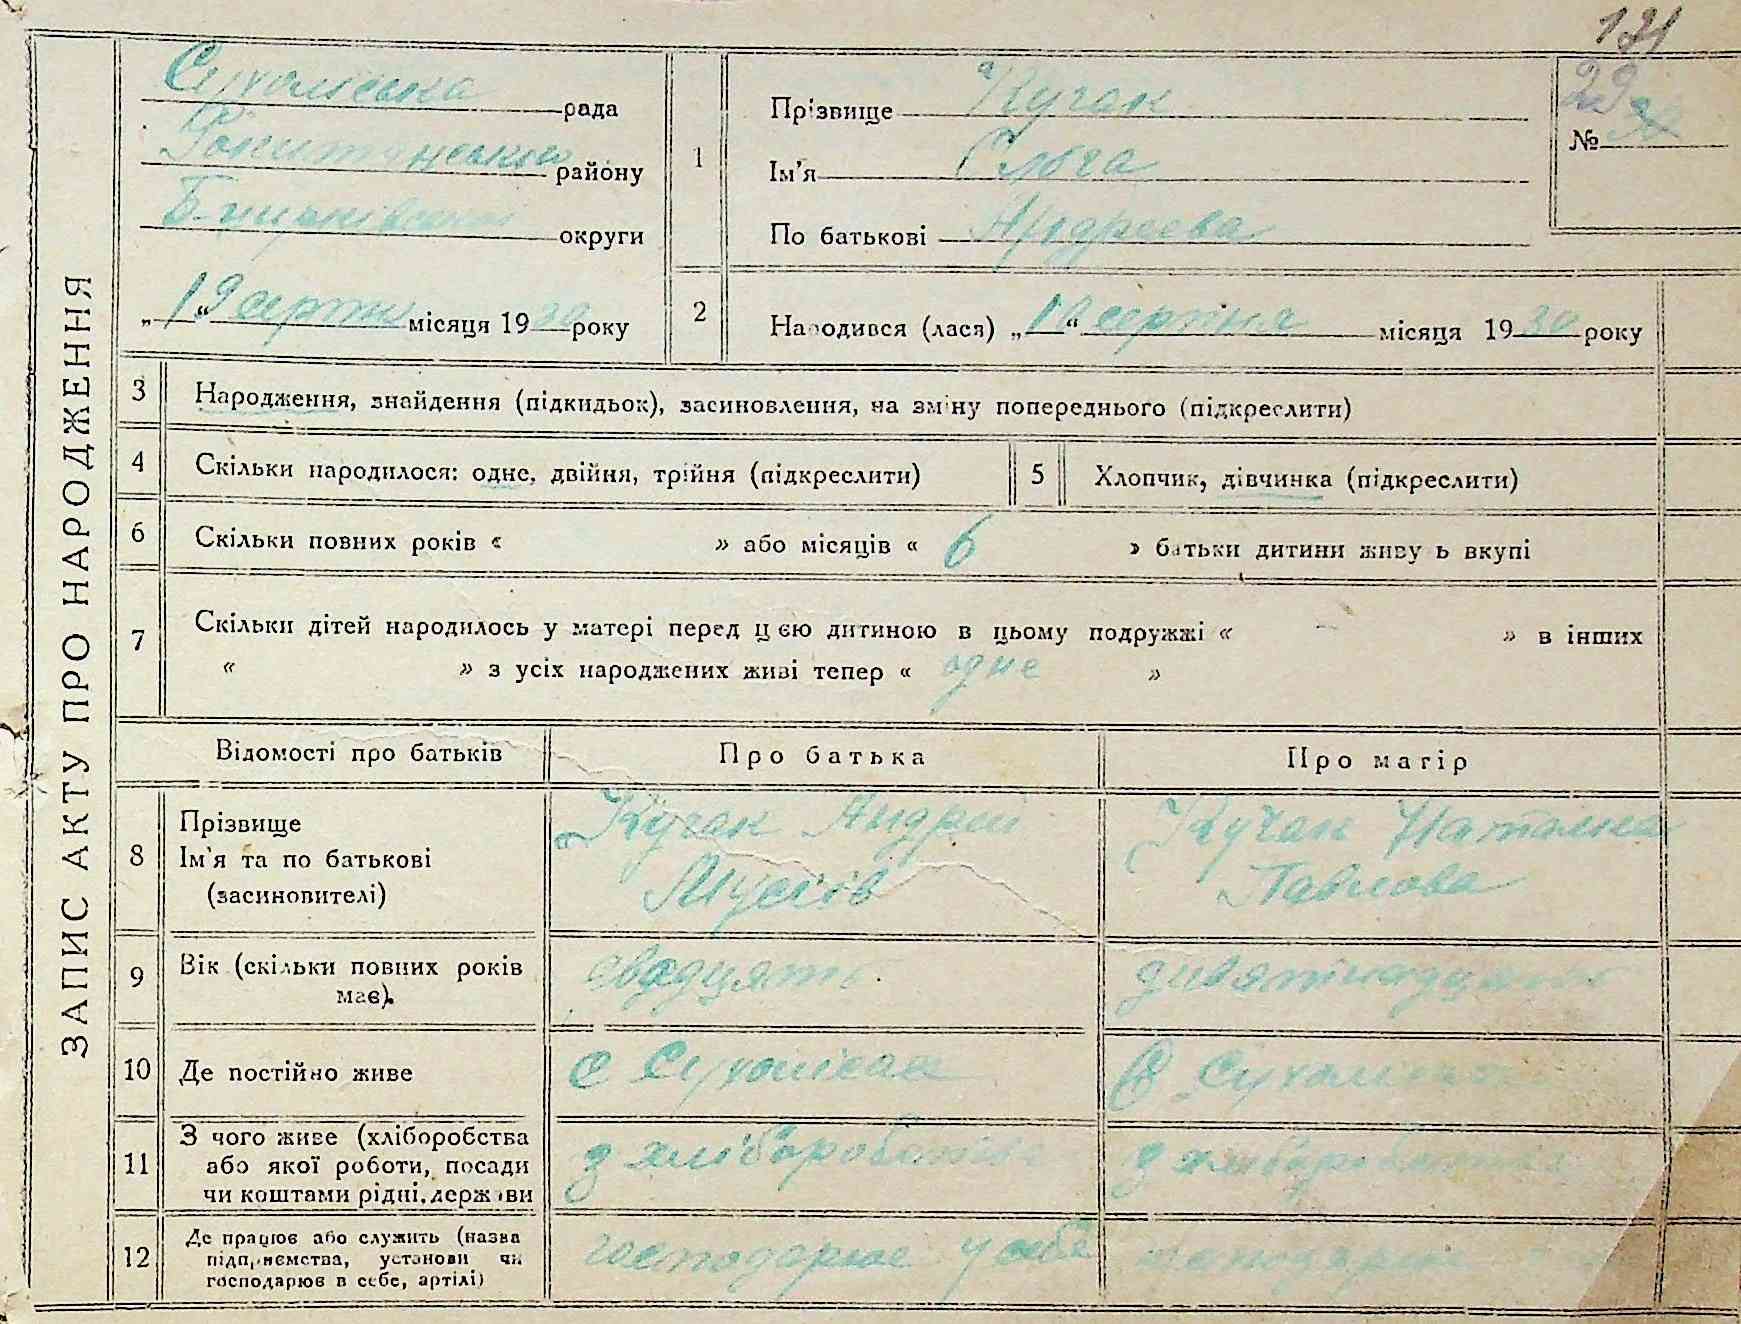 121
29
ЗАПИС АКТУ ПРО НАРОДЖЕННЯ
Сухоліська рада
району
округи
„19“ серпня місяця 1930 року
1
Прізвище Кучак
Ім'я Ольга
По батькові Андреєва
№
2
Народився (лася) „10“ серпня місяця 1930 року
3
Народження, знайдення (підкидьок), засиновлення, на зміну попереднього (підкреслити)
4
Скільки народилося: одне, двійня, трійня (підкреслити)
5
Хлопчик, дівчинка (підкреслити)
6
Скільки повних років « » або місяців « 6 » батьки дитини живуть вкупі
7
Скільки дітей народилось у матері перед цією дитиною в цьому подружжі « — » в інших
« » з усіх народжених живі тепер « одне »
Відомості про батьків
Про батька
Про матір
8
Прізвище
Ім'я та по батькові
(засиновителі)
Кучак Андрій
Мусіїв
Кучак Наталка
Павлова
9
Вік (скільки повних років
має).
двадцять
дивятнадцять
10
Де постійно живе
с Сухоліси
в Сухоліси
11
З чого живе (хліборобства
або якої роботи, посади
чи коштами рідні, держави
з хліборобства
з хліборобства
12
Де працює або служить (назва
підприємства, установи чи
господарює в себе, артілі)
господарює у себе
господарює